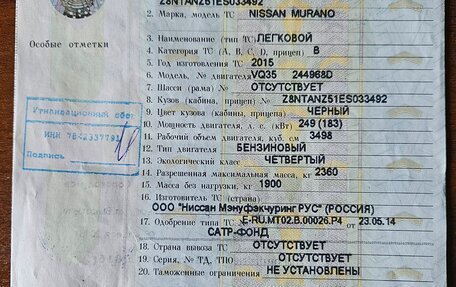 Z8NTANZ51ES033492
2. Марка, модель ТС NISSAN MURANO
3. Наименование (тип ТС) ЛЕГКОВОЙ
Особые отметки
4. Категория ТС (A, B, C, D, прицеп) B
5. Год изготовления ТС 2015
6. Модель, № двигателя VQ35 244968D
7. Шасси (рама) № ОТСУТСТВУЕТ
8. Кузов (кабина, прицеп) № Z8NTANZ51ES033492
9. Цвет кузова (кабины, прицепа) ЧЕРНЫЙ
Утилизационный сбор
10. Мощность двигателя, л. с. (кВт) 249 (183)
ИНН
11. Рабочий объем двигателя, куб. см 3498
12. Тип двигателя БЕНЗИНОВЫЙ
Подпись
13. Экологический класс ЧЕТВЕРТЫЙ
14. Разрешенная максимальная масса, кг 2360
15. Масса без нагрузки, кг 1900
16. Изготовитель ТС (страна)
ООО "Ниссан Мэнуфэкчуринг РУС" (РОССИЯ)
17. Одобрение типа ТС № E-RU.MT02.B.00026.P4 от 23.05.14
САТР-ФОНД
18. Страна вывоза ТС ОТСУТСТВУЕТ
19. Серия, № ТД, ТПО ОТСУТСТВУЕТ
20. Таможенные ограничения НЕ УСТАНОВЛЕНЫ